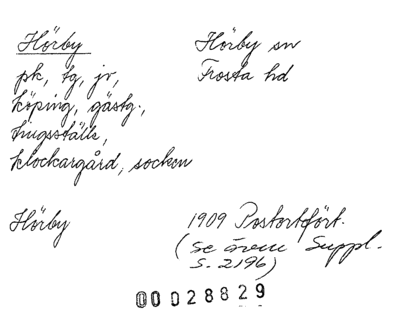 Hörby
Hörby sn
pk, tg, jr,
Frosta hd
köping, gästg.,
tingsställe,
klockargård, socken
Hörby
1909 Postortsfört.
(se även Suppl.
S. 2196)
00028829